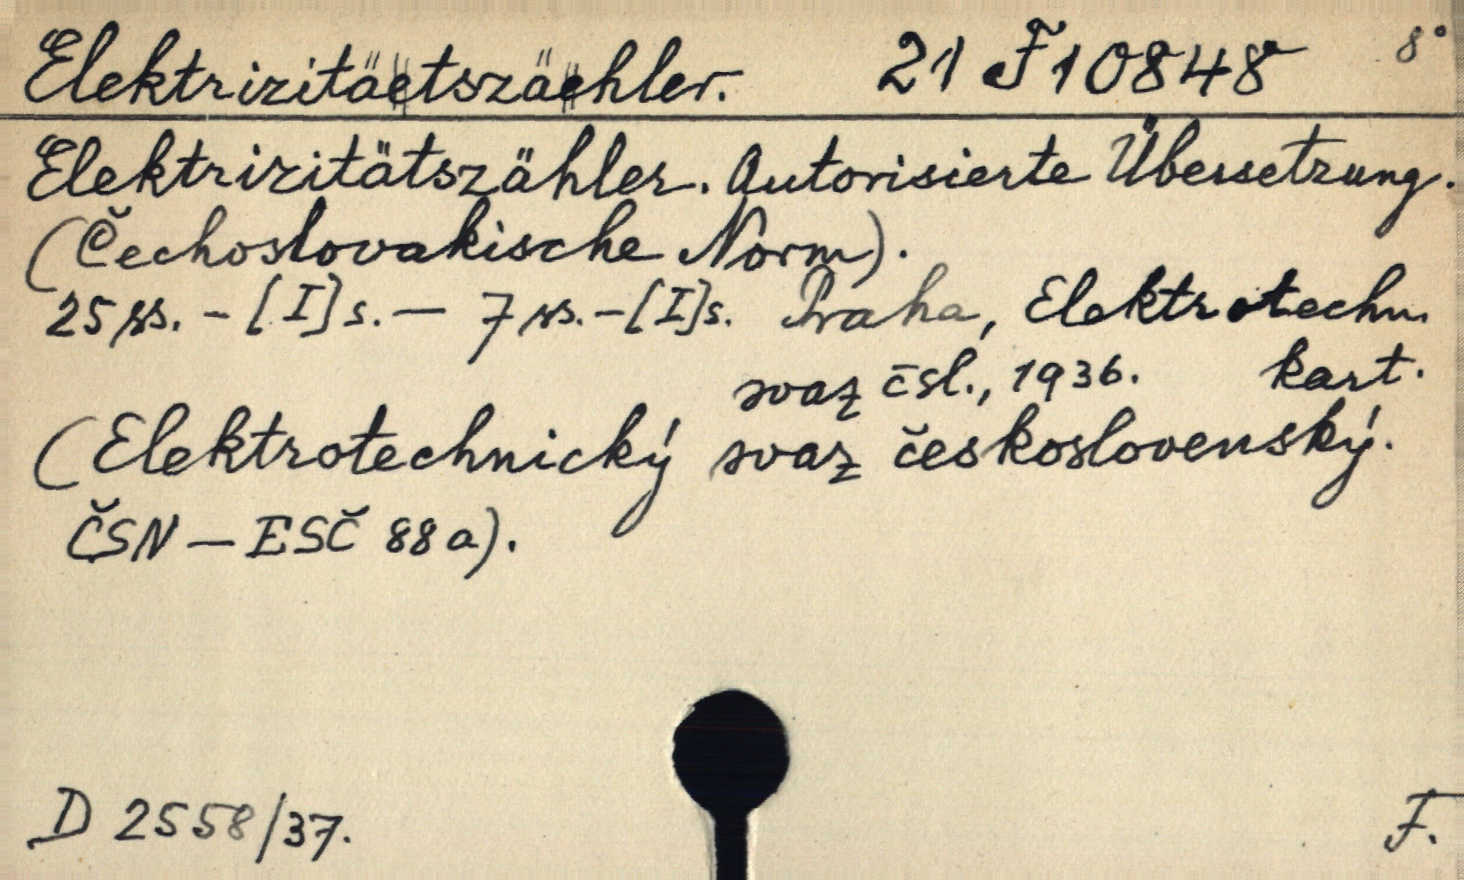 Elektrizitäetszäehler. 21 F 10848 8°
Elektrizitätszähler. Autorisierte Übersetzung.
(Čechoslovakische Norm).
25 ss. - [I] s. — 7 ss. - [I] s. Praha, Elektrotechn.
svaz čsl., 1936. kart.
(Elektrotechnický svaz československý.
ČSN — ESČ 88a).
D 2558/37. F.